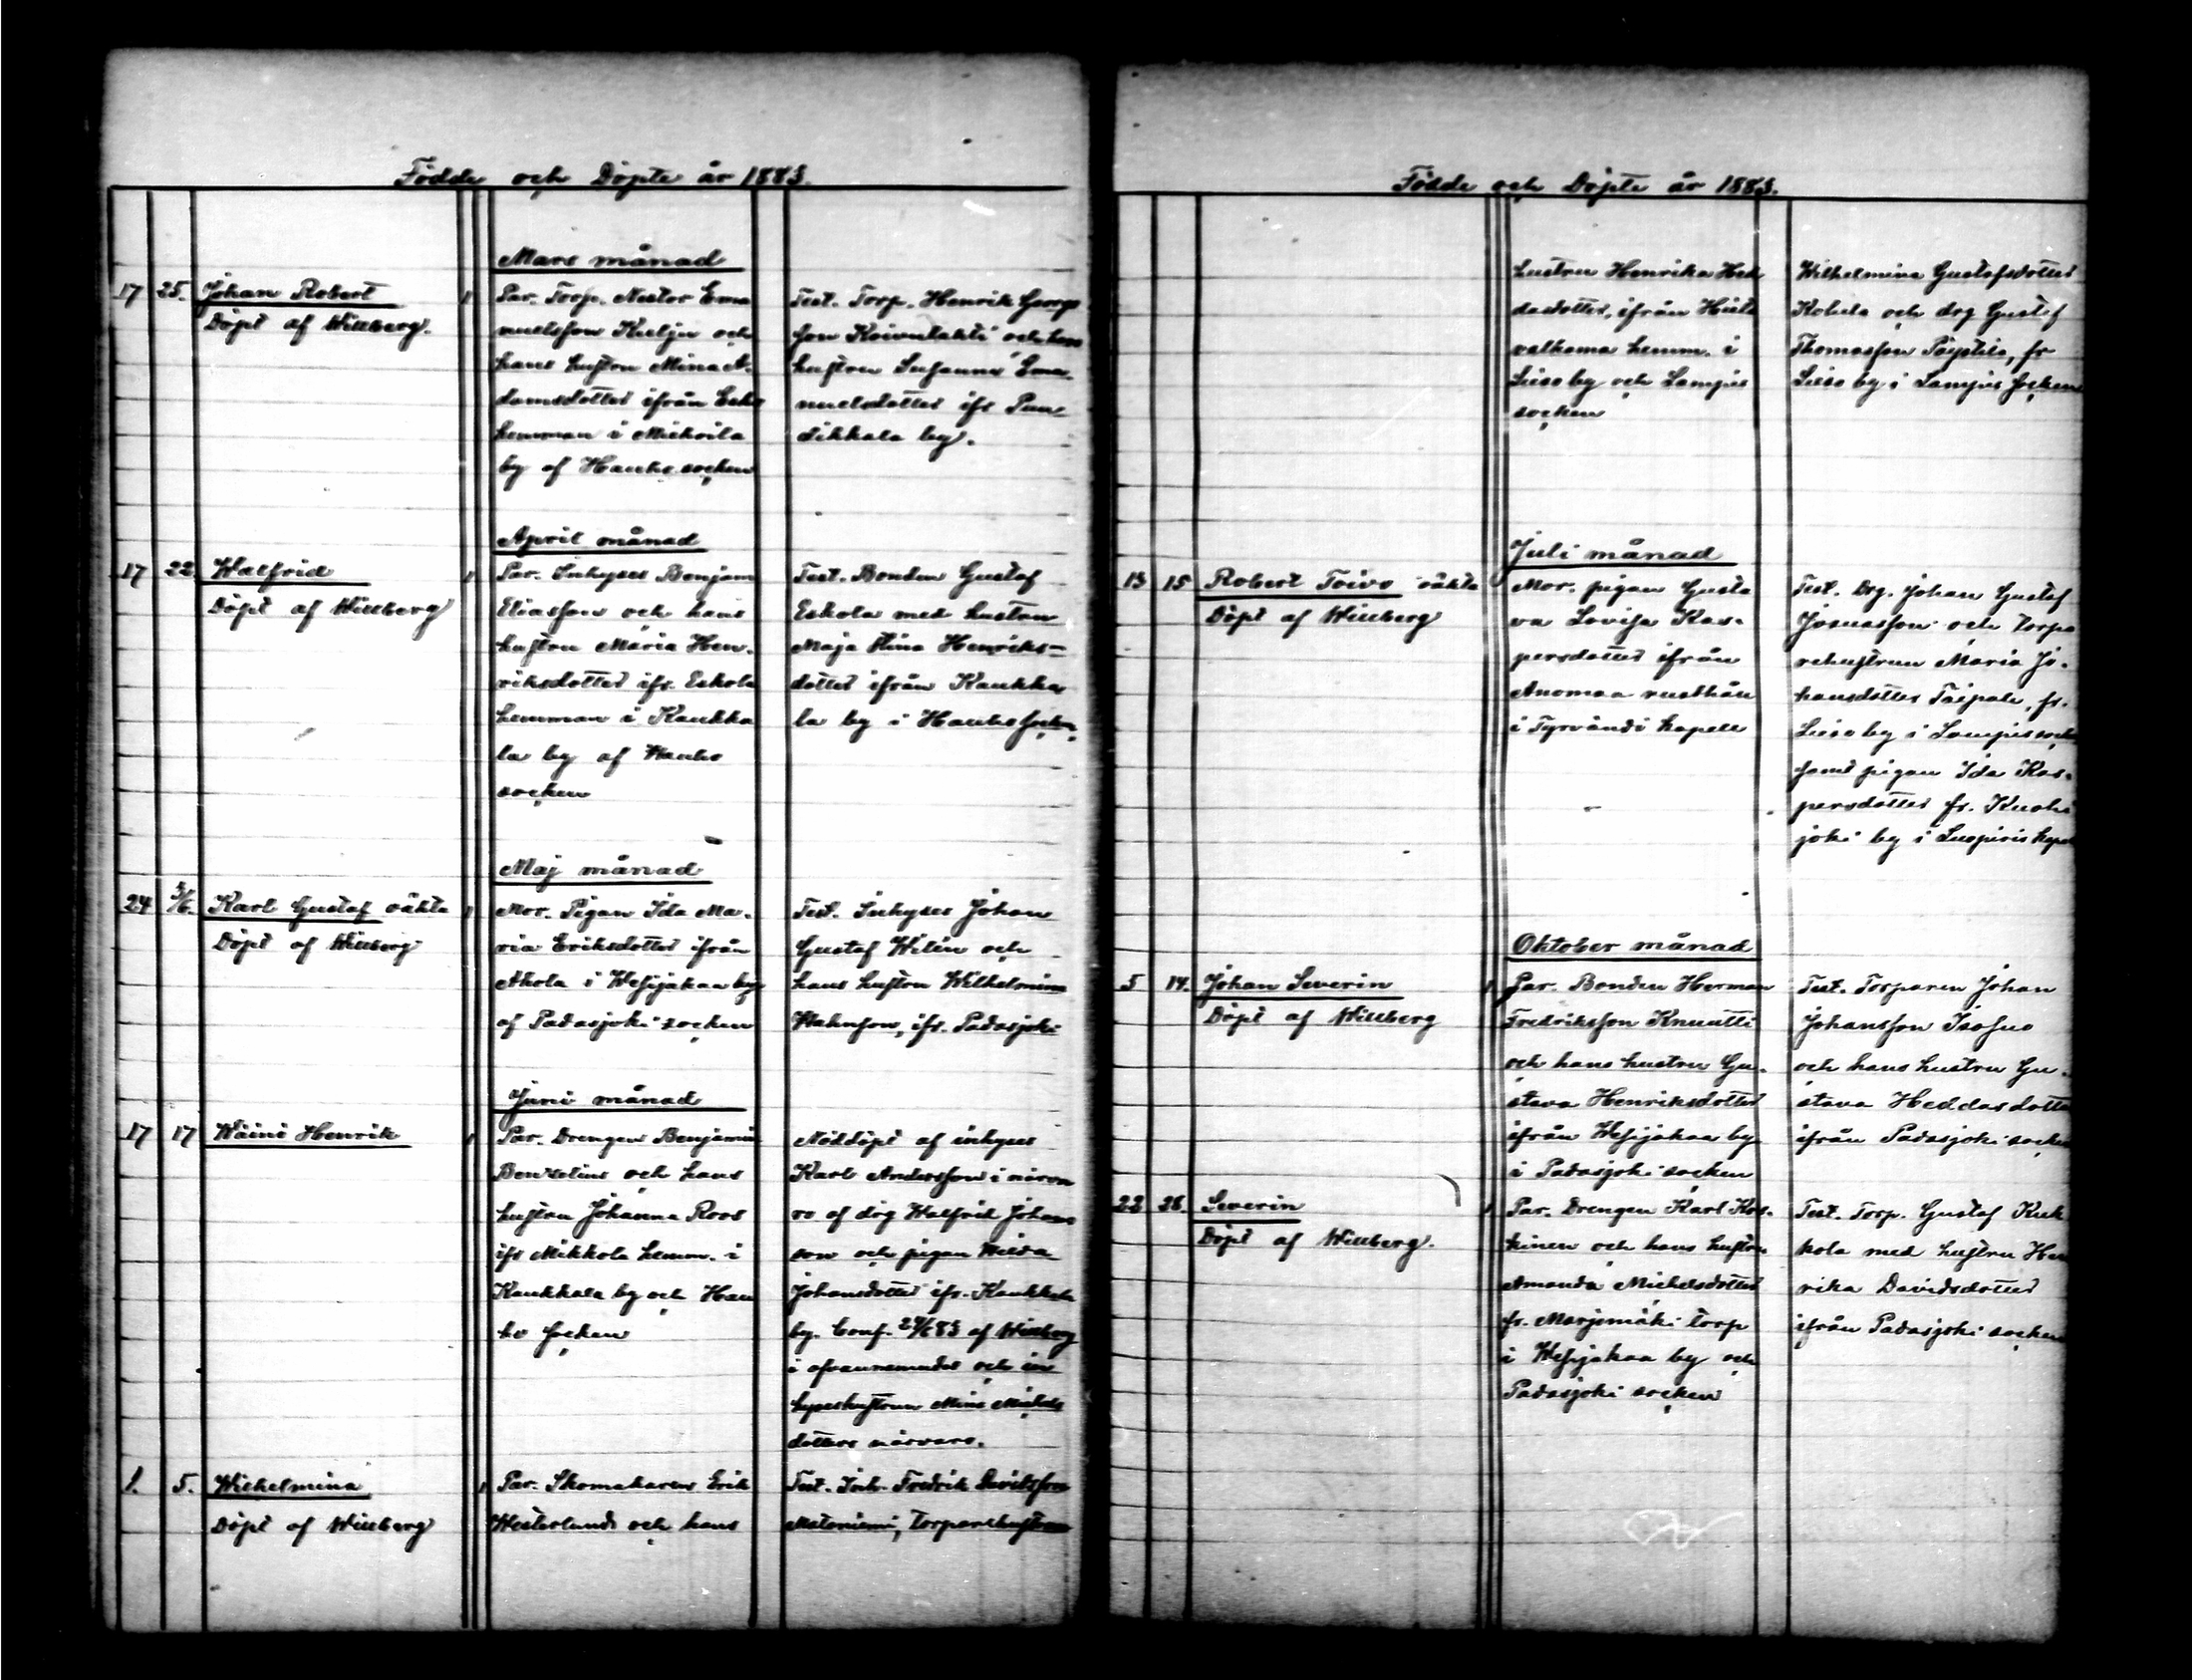 Födde och Döpte år 1883.
Mars månad
17 25. Johan Robert
Döpt af Willberg.
1
Par. Torp. Nestor Ema
nuelsson Kulju och
hans hustru Mina A-
damsdotter ifrån
hemman i
by af Hauho socken
Test. Torp. Henrik Georgs
son Koivulahti och hans
hustru Susanna Ema-
nuelsdotter ifr
by.
April månad
17 22 Walfrid
Döpt af Willberg
1
Par. Inhyses Benjam
Eliasson och hans
hustru Maria Hen-
riksdotter ifr. Eskola
hemman i Kaukka
la by af Hauho
socken
Test. Bonden Gustaf
Eskola med hustru
Maja Stina Henriks=
dotter ifrån Kaukka
la by i Hauho socken.
Maj månad
24 3/6. Karl Gustaf oäkta
Döpt af Willberg
1
Mor. Pigan Ida Ma-
ria Eriksdotter ifrån
Ahola i Wesijakaa by
af Padasjoki socken
Test. Inhyses Johan
Gustaf Wilén och
hans hustru Wilhelmina
ifr. Padasjoki
Juni månad
17 17 Wäinö Henrik
1
Par. Drengen Benjamin
och hans
hustru Johanna Roos
ifr Mikkola hemm. i
Kaukkala by och Hau
ho socken
Nöddöpt af inhyses
Karl Andersson i närva
ro af drg Walfrid Johans
son och pigan Hilda
Johansdotter ifr. Kaukkala
by. Conf. 83 af Willberg
i ofvannemndes och in
hyseshustrun Mina Michels
dotters närvaro.
1. 5. Wilhelmina
Döpt af Willberg
1
Par. Skomakaren Erik
Westerlund och hans
Test. Inh. Fredrik Davidsson
Mataniemi, torparehustrun
Födde och Döpte år 1883.
hustru Henrika Hed
dasdotter, ifrån
valkama hemm. i
Lieso by och Lampis
socken
Wilhelmina Gustafsdotter
och drg Gustaf
Thomasson fr
Lieso by i Lampis socken
Juli månad
13 15 Robert Toivo oäkta
Döpt af Willberg
Mor. pigan Gusta
va Lovisa Kas-
persdotter ifrån
Anomaa rusthåll
i Tyrväntö kapell
Test. Drg. Johan Gustaf
Josuasson och torpa
rehustrun Maria Jo-
hansdotter Taipale, fr.
Lieso by i Lampis socken
samt pigan Ida Kas-
persdotter fr. Kuohi
joki by i Luopiois kapell
Oktober månad
5 14. Johan Severin
Döpt af Willberg
1
Par. Bonden Herman
Fredriksson Knuutti
och hans hustru Gu-
stava Henriksdotter
ifrån Wesijakaa by
i Padasjoki socken
Test. Torparen Johan
Johansson Isosuo
och hans hustru Gu-
stava Heddasdotter
ifrån Padasjoki socken
22 26. Severin
Döpt af Willberg.
1
Par. Drengen Karl Kos-
kinen och hans hustru
Amanda Michelsdotter
fr. Marjomäki torp
i Wesijakaa by och
Padasjoki socken
Test. Torp. Gustaf Kuk
kola med hustru Hen
rika Davidsdotter
ifrån Padasjoki socken